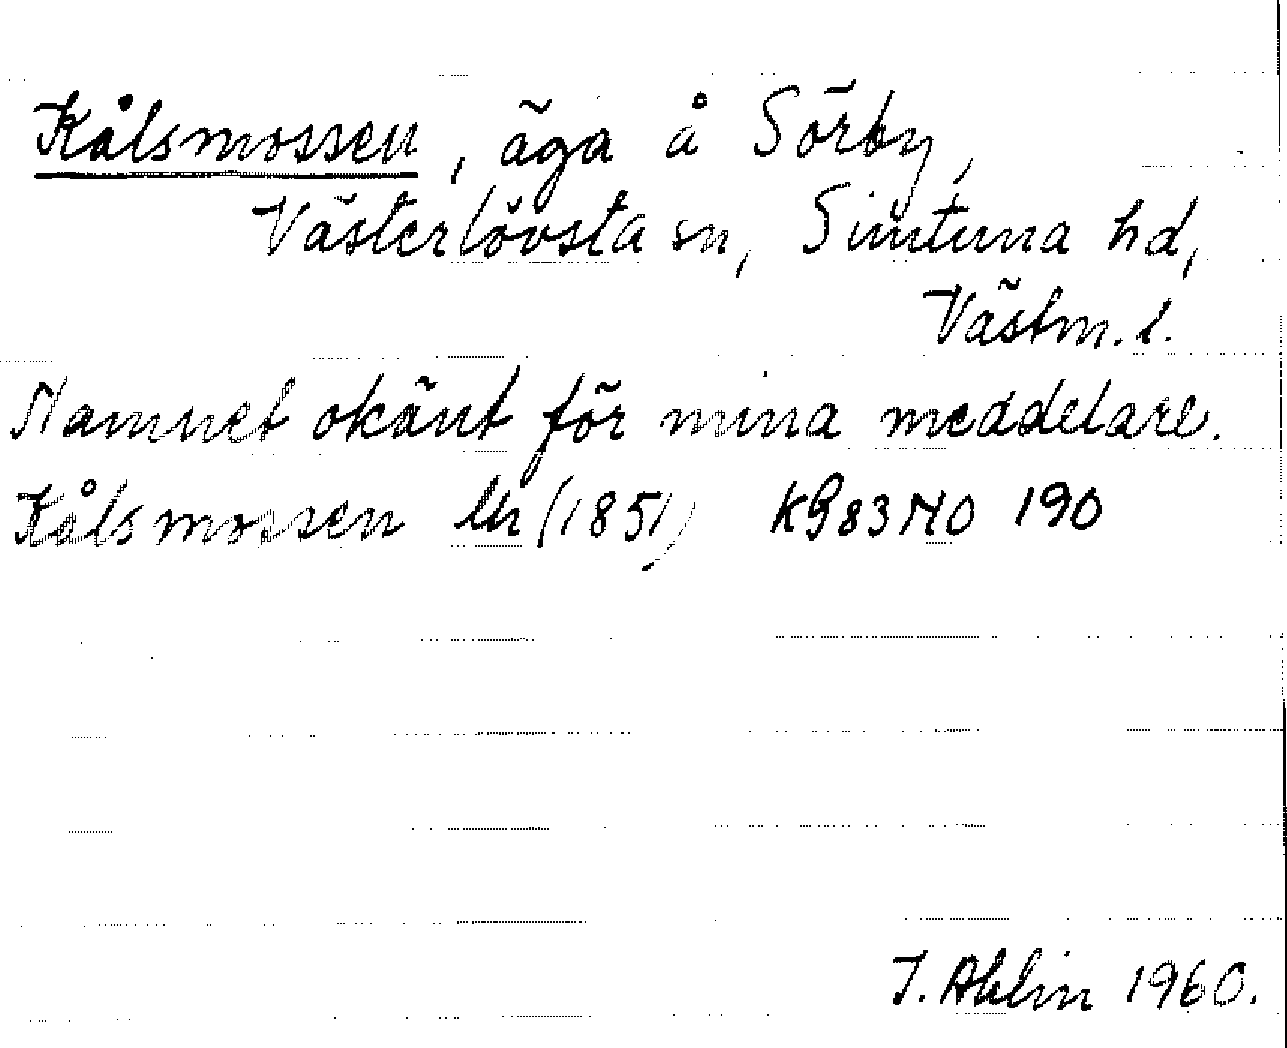 Kålsmossen, äga å Sörby,
Västerlövsta sn, Simtuna hd,
Västm. l.
Namnet okänt för mina meddelare.
Kålsmossen (1851) 190
I. Ahlin 1960.